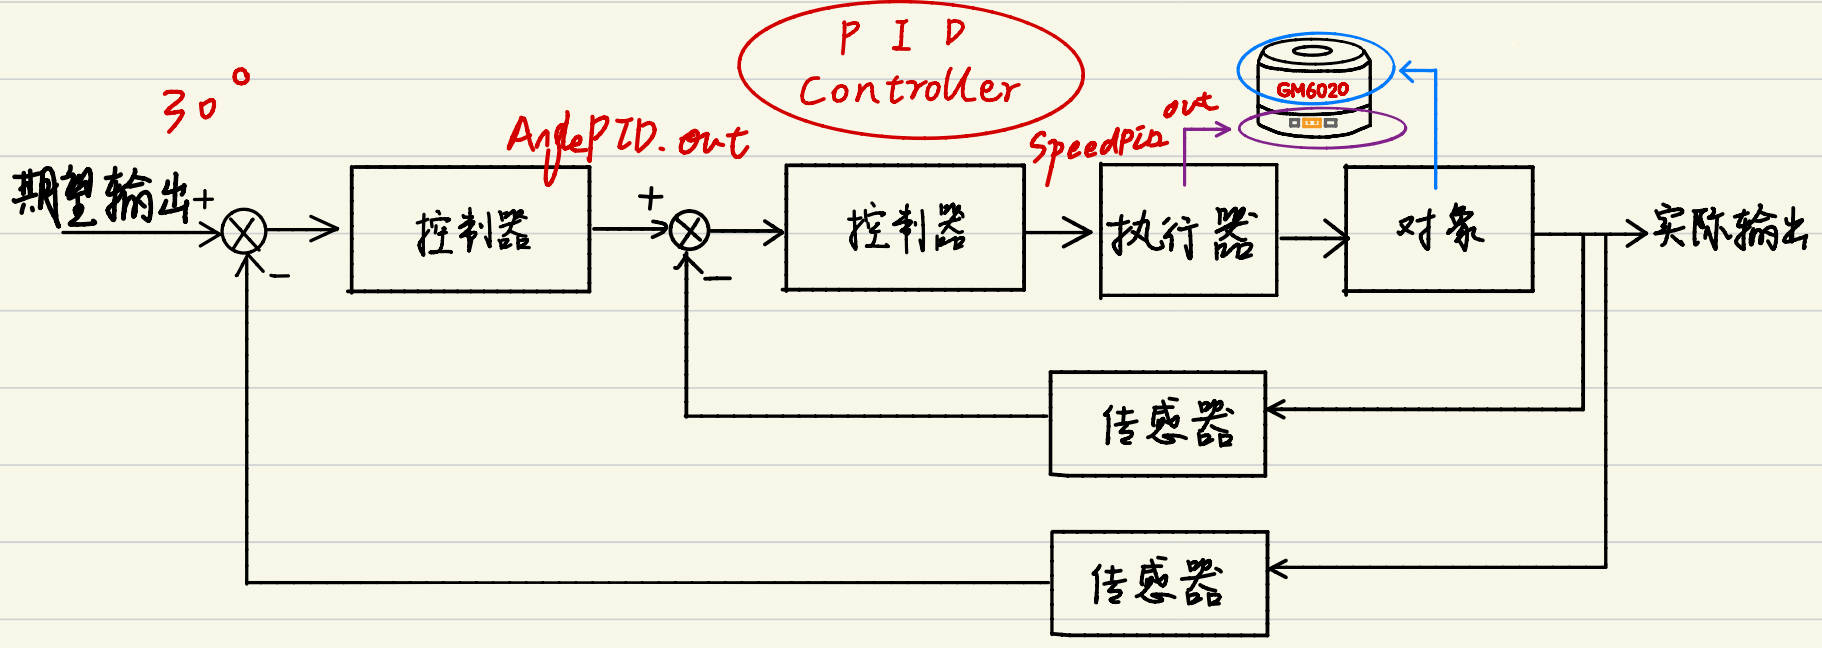 P I D
Controller
30°
AnglePID.out
SpeedPID out
GM6020
期望输出
+
-
控制器
+
-
控制器
执行器
对象
实际输出
传感器
传感器